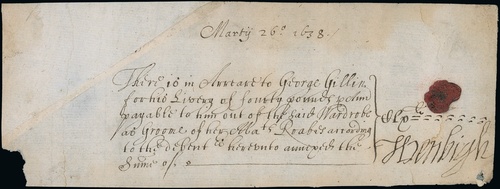 Martij 26º 1638.
There is in Arreare to George Gillin
for his Livery of fourty pounds p Ann
payable to him out of the said Wardrobe
as Groome of her Ma:ts Roabes according
to the debent hereunto annexed the
Sume of.
Denbigh